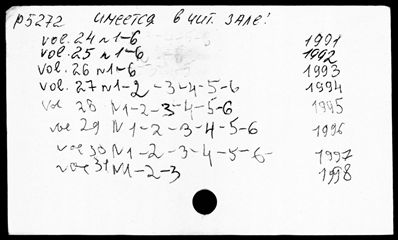 р5272 имеется в чит. зале!
vol. 24 N 1-6 1991
vol. 25 N 1-6 1992
vol. 26 N 1-6 1993
vol. 27 N 1-2-3-4-5-6 1994
vol 28 N 1-2-3-4-5-6 1995
vol 29 N 1-2-3-4-5-6 1996
vol 30 N 1-2-3-4-5-6- 1997
vol 31 N 1-2-3 1998